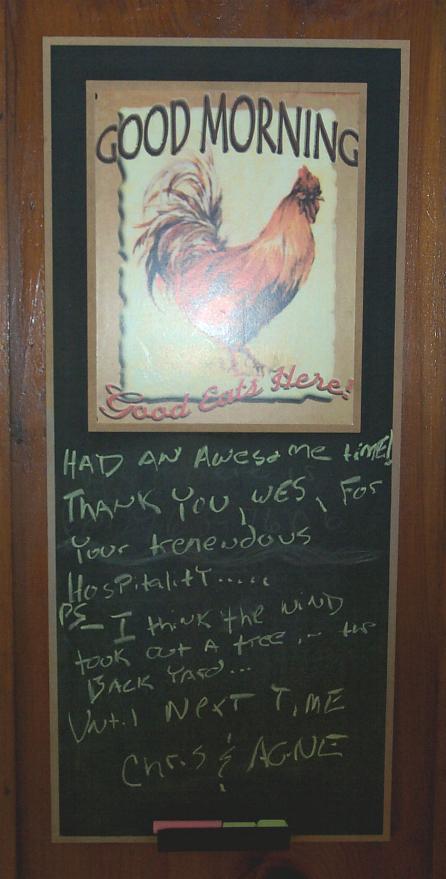 GOOD MORNING
Good Eats Here!
HAD AN AWESOME TIME!
THANK YOU, WES, FOR
Your tremendous
HOSPITALITY.....
PS- I think the WIND
took out a tree in the
BACK YARD...
UNTIL NEXT TIME
Chris & AGNE